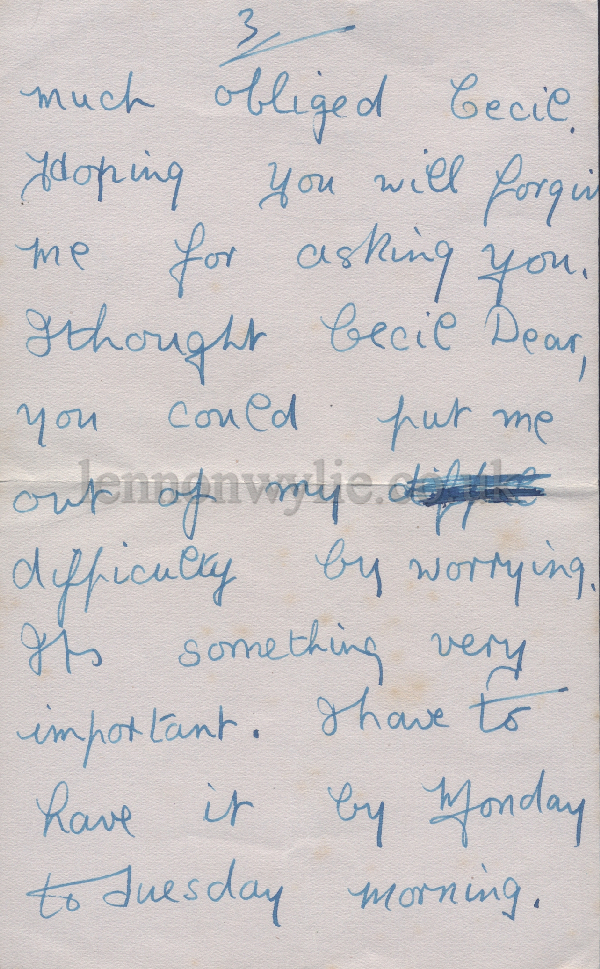 3
much obliged Cecil.
Hoping you will forgiv
me for asking you.
I thought Cecil Dear,
you could put me
out of my
lennonwylie.co.uk
difficulty by worrying.
Its something very
important. I have to
have it by Monday
to Tuesday morning.